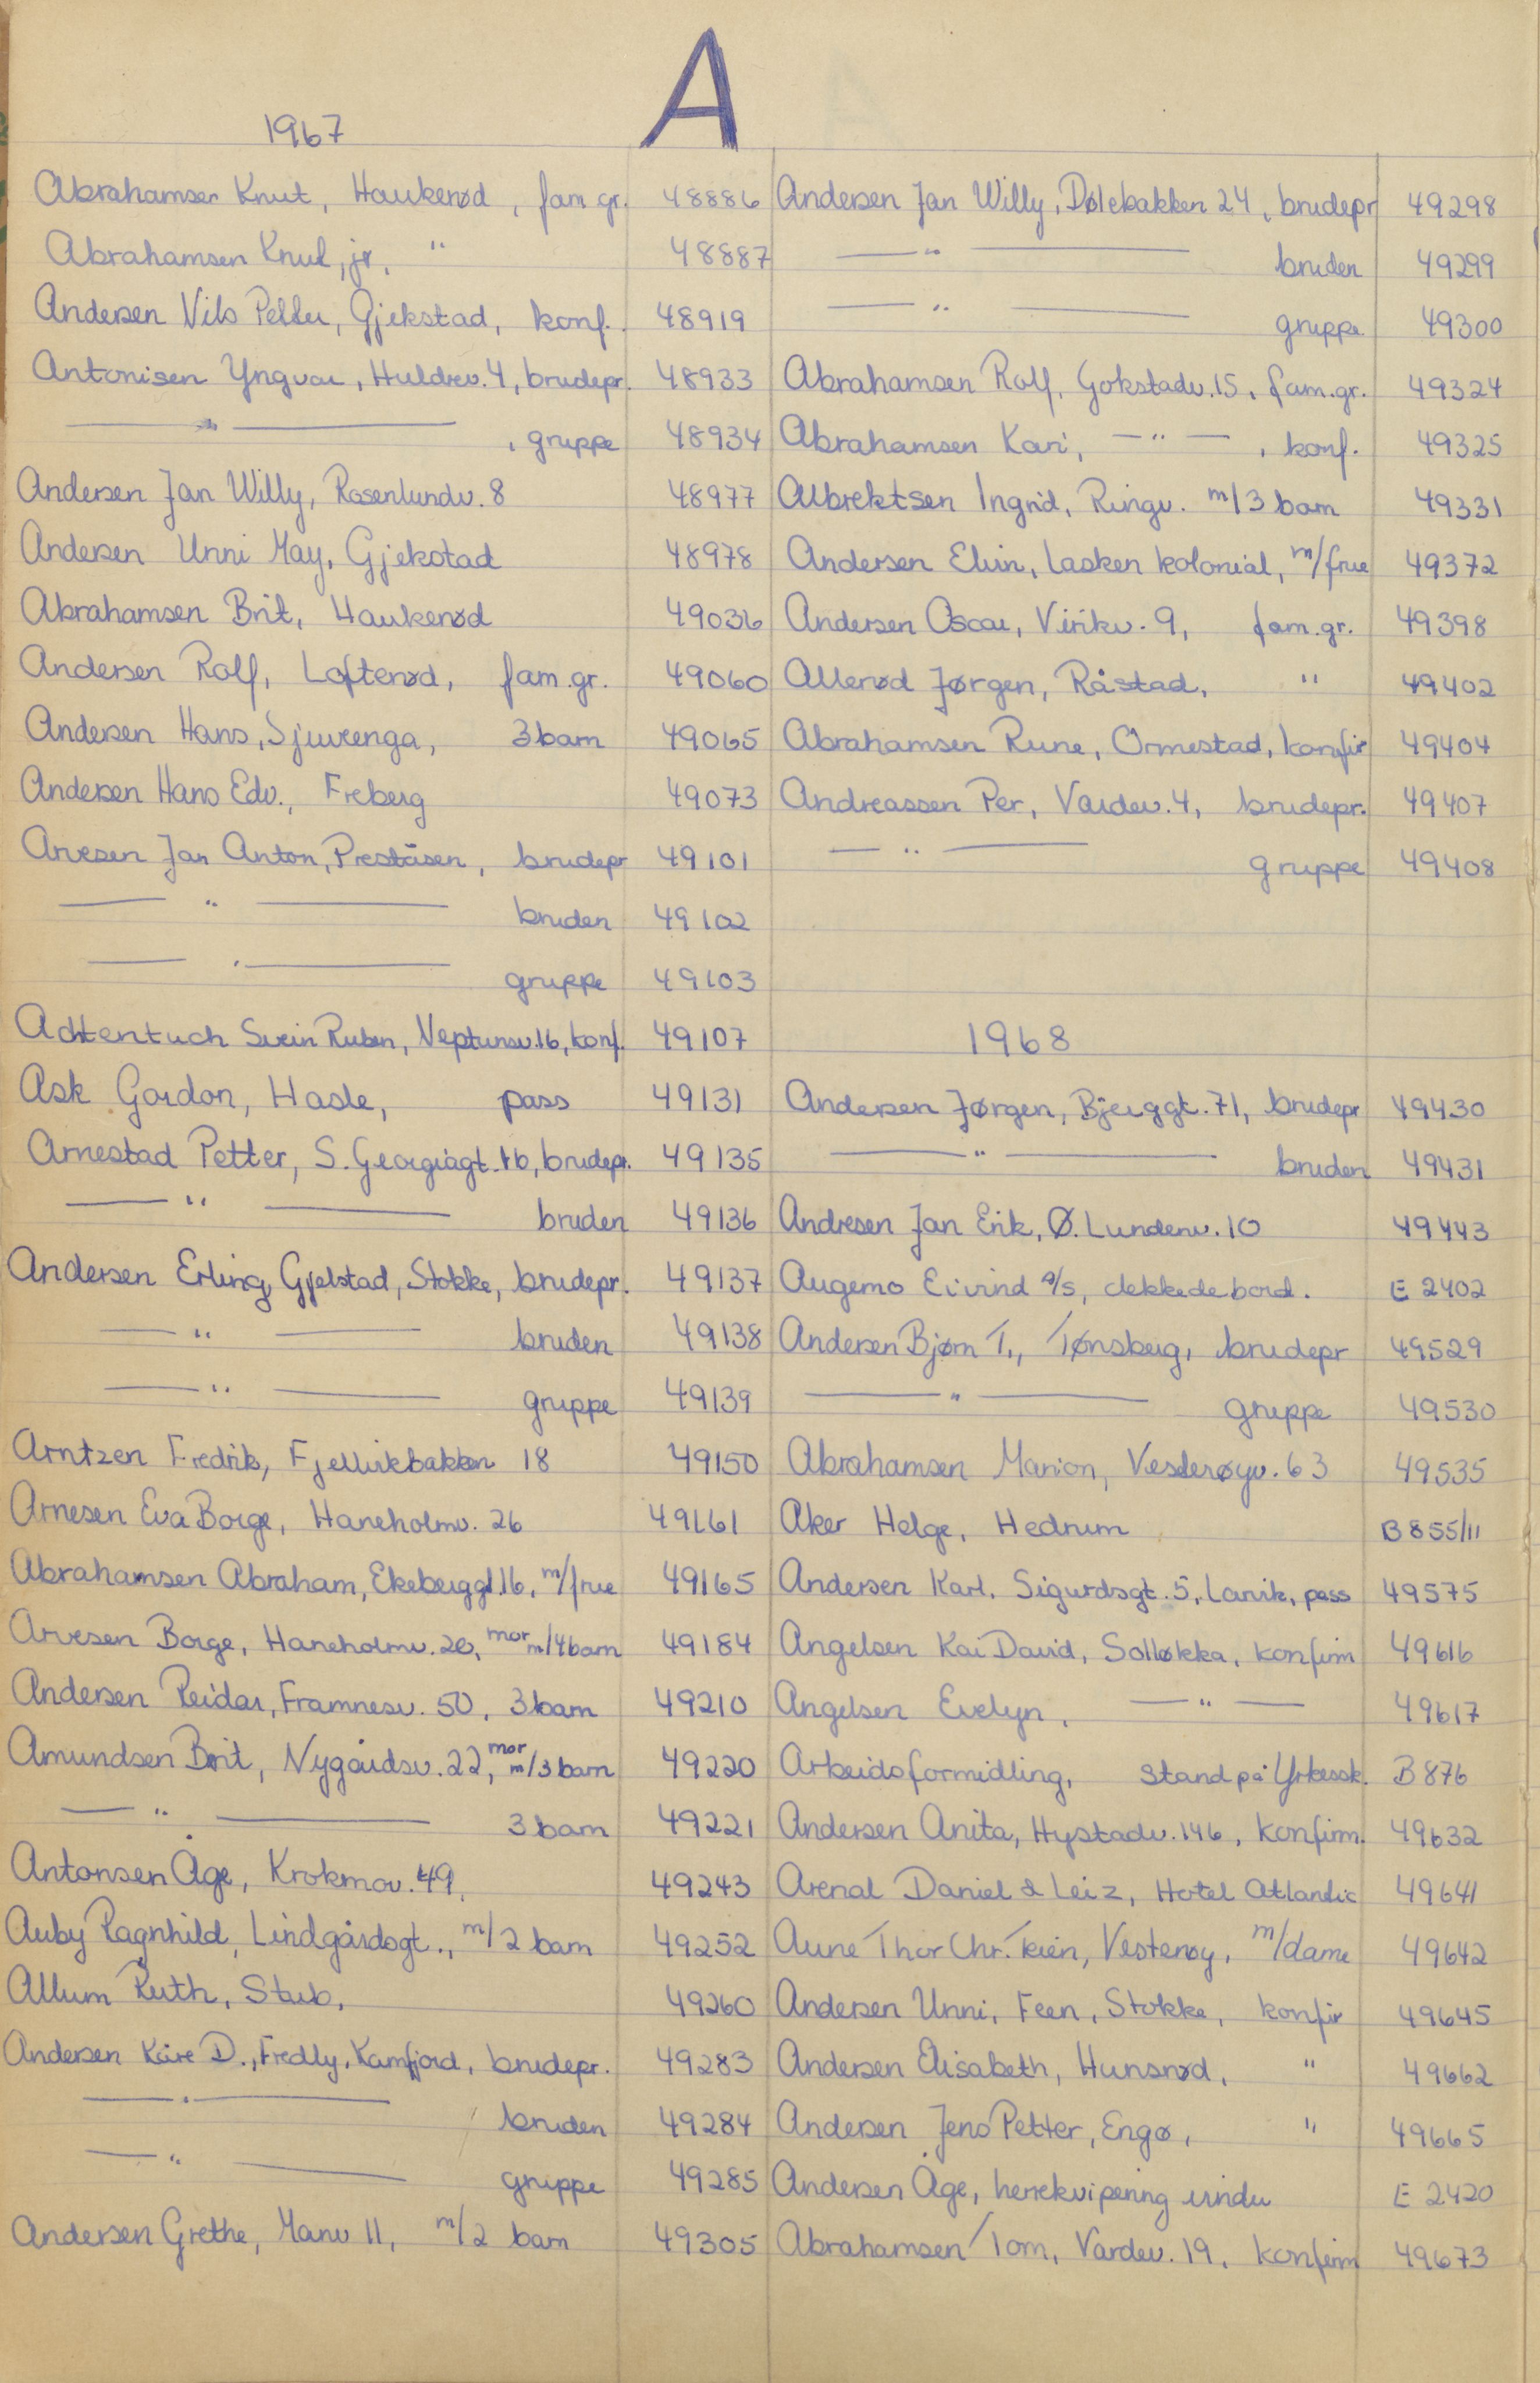 A
1967
Abrahamsen Knut, Haukerød, fam.gr. 48886
Abrahamsen Knut, jr, " 48887
Andersen Nils Petter, Gjekstad, konf. 48919
Antonisen Yngvar, Huldrev. 4, brudepr. 48933
— " — , gruppe 48934
Andersen Jan Willy, Rosenlundv. 8 48977
Andersen Unni May, Gjekstad 48978
Abrahamsen Brit, Haukerød 49036
Andersen Rolf, Lofterød, fam.gr. 49060
Andersen Hans, Sjuvenga, 3 barn 49065
Andersen Hans Edv., Freberg 49073
Arvesen Jan Anton, Preståsen, brudepr 49101
— " — bruden 49102
— " — gruppe 49103
Achtentuch Svein Ruben, Neptunsv.16, konf. 49107
Ask Gordon, Hasle, pass 49131
Arnestad Petter, S. Georgiagt. 16, brudepr. 49135
— " — bruden 49136
Andersen Erling, Gjelstad, Stokke, brudepr. 49137
— " — bruden 49138
— " — gruppe 49139
Arntzen Fredrik, Fjellvikbakken 18 49150
Arnesen Eva Borge, Haneholmv. 26 49161
Abrahamsen Abraham, Ekebergggt.16, m/frue 49165
Arvesen Borge, Haneholmv. 20, mor m/4 barn 49184
Andersen Reidar, Framnesv. 50, 3 barn 49210
Amundsen Brit, Nygårdsv. 22, mor m/3 barn 49220
— " — 3 barn 49221
Antonsen Åge, Krokmov. 49, 49243
Auby Ragnhild, Lindgårdsgt., m/2 barn 49252
Allum Ruth, Stub, 49260
Andersen Kåre D., Fredly, Kamfjord, brudepr. 49283
— " — bruden 49284
— " — gruppe 49285
Andersen Grethe, Manv 11, m/2 barn 49305
Andersen Jan Willy, Dølebakken 24, brudepr 49298
— " — bruden 49299
— " — gruppe 49300
Abrahamsen Rolf, Gokstadv. 15, fam.gr. 49324
Abrahamsen Kari, — " — , konf. 49325
Albrektsen Ingrid, Ringv. m/3 barn 49331
Andersen Elvin, Lasken kolonial, m/frue 49372
Andersen Oscar, Virikv. 9, fam.gr. 49398
Allerød Jørgen, Råstad, " 49402
Abrahamsen Rune, Ormestad, konfir 49404
Andreassen Per, Vardev. 4, brudepr. 49407
— " — gruppe 49408
1968
Andersen Jørgen, Bjerggt. 71, brudepr 49430
— " — bruden 49431
Andresen Jan Erik, Ø. Lundenv. 10 49443
Augemo Eivind a/s, dekkede bord. E 2402
Andersen Bjørn T., Tønsberg, brudepr 49529
— " — gruppe 49530
Abrahamsen Marion, Vesterøyv. 63 49535
Aker Helge, Hedrum B 855/11
Andersen Karl. Sigurdsgt. 5, Larvik, pass 49575
Angelsen Kai David, Solløkka, konfirm 49616
Angelsen Evelyn, — " — 49617
Arbeidsformidling, stand på Yrkessk. B 876
Andersen Anita, Hystadv. 146, konfirm. 49632
Arenal Daniel & Leiz, Hotel Atlantic 49641
Aune Thor Chr. Teien, Vesterøy, m/dame 49642
Andersen Unni, Feen, Stokke, konfir 49645
Andersen Elisabeth, Hunsrød, " 49662
Andersen Jens Petter, Engø, " 49665
Andersen Åge, herrekvipering vindu E 2420
Abrahamsen Tom, Vardev. 19, konfirm 49673